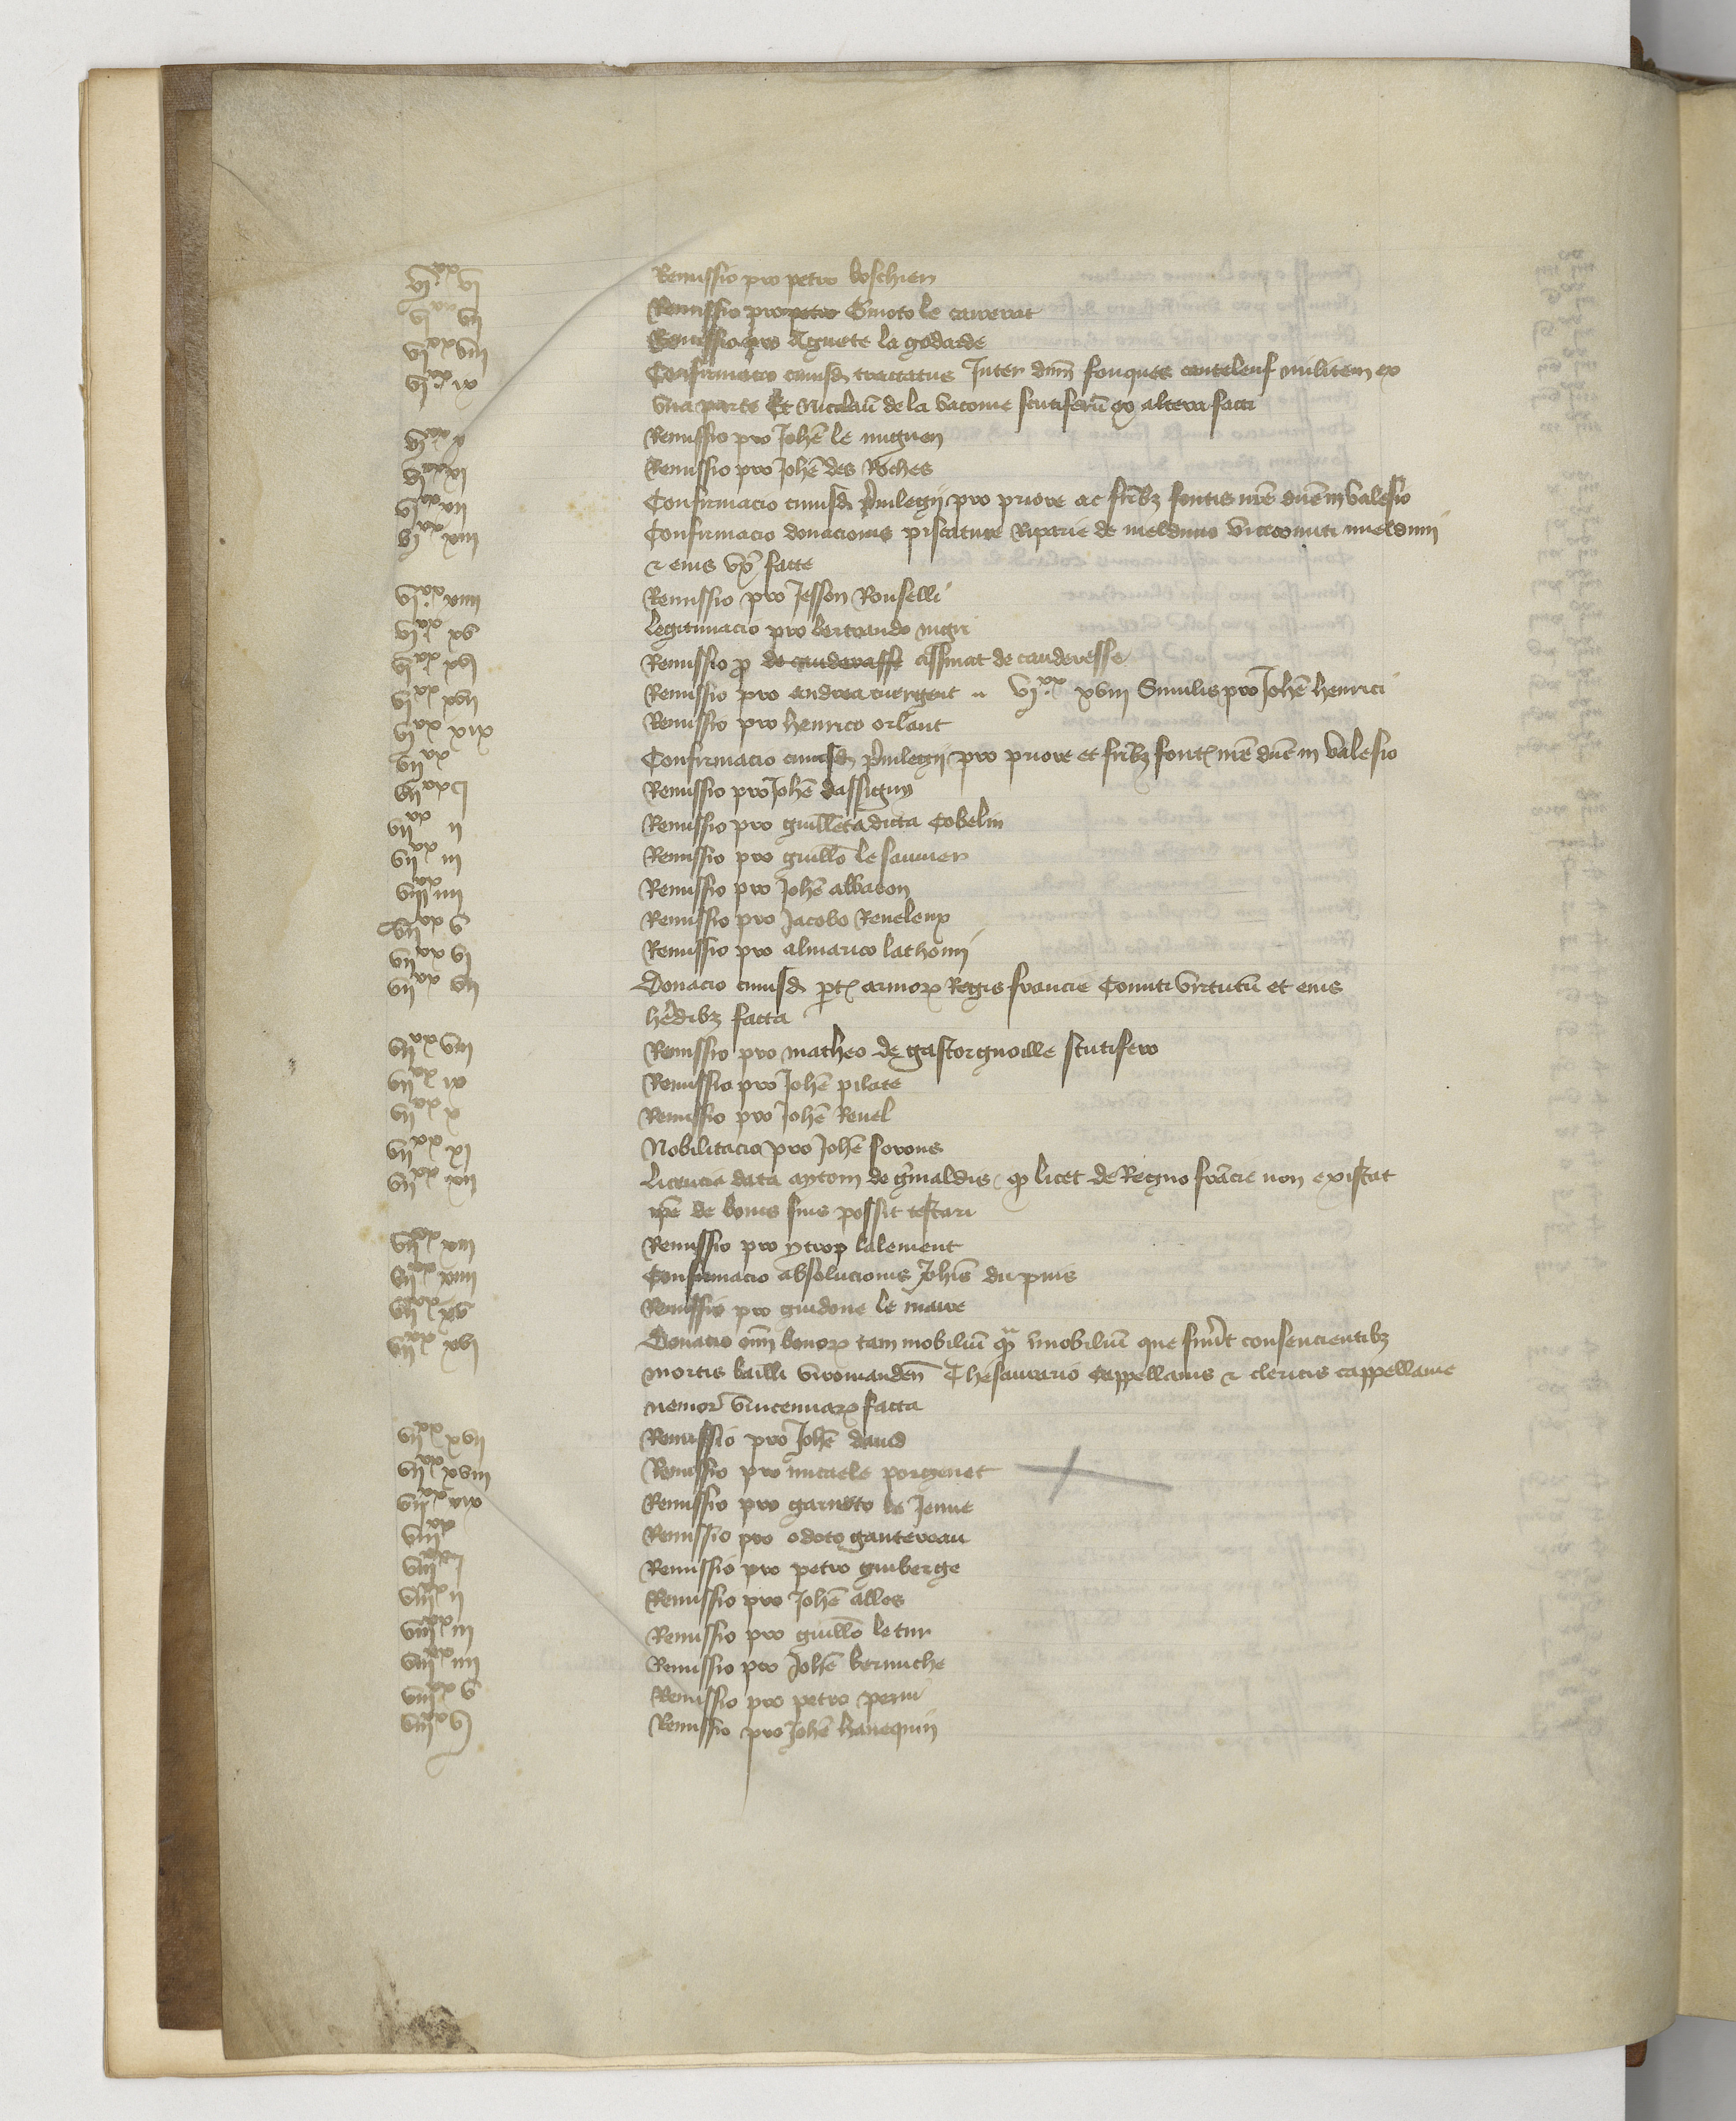 vi^xx vi Remissio pro petro boschier
vi^xx vii Remissio pro petro Guioto le caverrat
vi^xx viii Remissio pro Agnete la godarde
vi^xx ix Confirmacio cuiusd tractatus Inter dnm fouques cauteleuf militem ex
una parte Et Nicolau de la vacouie scutiferu ex altera facti
vi^xx x Remissio pro Johe le miguen
vi^xx xi Remissio pro Johe des Roches
vi^xx xii Confirmacio cuiusd privilegii pro priore ac frib3 fontis nre dne in valesio
vi^xx xiii Confirmacio donacionis piscature Riparie de melduno vicecomiti melduni
& eius ux facte
vi^xx xiiii Remissio pro Jesson Rouselli
vi^xx xv Legitimacio pro bertrando nigri
vi^xx xvi Remissio p de cauderasse assinat de cauderesse
vi^xx xvii Remissio pro andrea cuergent vi^xx xviii Similis pro Johe henrici
vi^xx xix Remissio pro henrico orlant
vii^xx Confirmacio cuiusd privilegii pro priore et frib3 font nre dne in valesio
vii^xx i Remissio pro Johe dassigny
vii^xx ii Remissio pro guilleta dicta Cobelin
vii^xx iii Remissio pro guillo le saunier
vii^xx iiii Remissio pro Johe albacon
vii^xx v Remissio pro Jacobo Reveleux
vii^xx vi Remissio pro almarico lathomi
vii^xx vii Donacio cuiusd pt armor Regis francie Comiti virtutu et eius
heredib3 facta
vii^xx viii Remissio pro matheo de gastorgnoille scutifero
vii^xx ix Remissio pro Johe pilate
vii^xx x Remissio pro Johe Revel
vii^xx xi Nobilitacio pro Johe sorous
vii^xx xii Licencia data aytom de grimaldis q licet de Regno francie non existat
ipe de bonis suis possit testari
vii^xx xiii Remissio pro ytrop lalement
vii^xx xiiii Confirmacio absolucionis Johis du puis
vii^xx xv Remissio pro guidone le maire
vii^xx xvi Donacio oim bonor tam mobiliu q imobiliu que fuerut consencientib3
mortis bailli viromanden Thesaurario Cappellanis & clericis cappellanie
nemor vincennar facta
vii^xx xvii Remissio pro Johe david
vii^xx xviii Remissio pro micaele porchenet
vii^xx xix Remissio pro garneto le Jenne
viii^xx Remissio pro odoto gautereau
viii^xx i Remissio pro petro guiberge
viii^xx ii Remissio pro Johe alles
viii^xx iii Remissio pro guillo letur
viii^xx iiii Remissio pro Johe bernuche
viii^xx v Remissio pro petro perin
viii^xx vi Remissio pro Johe hanequin